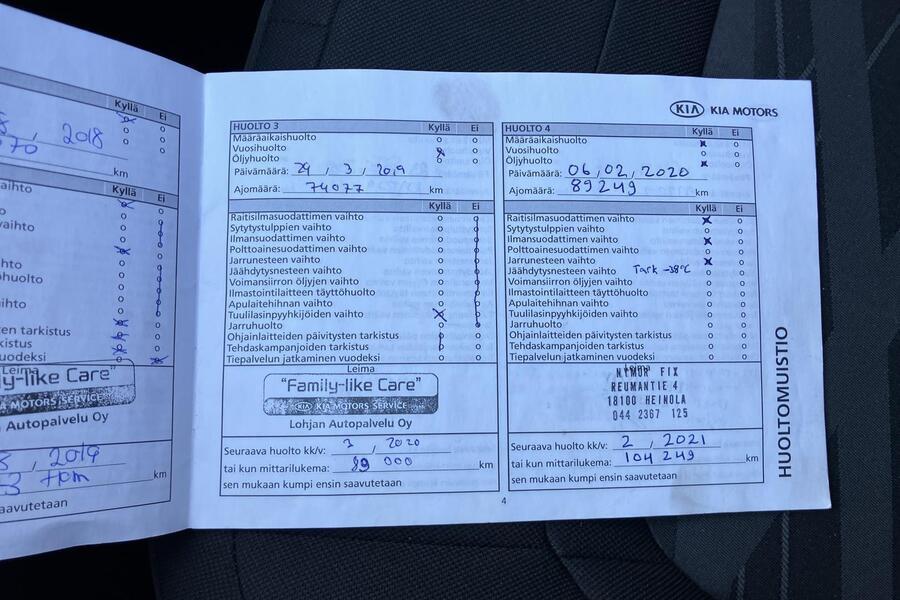 Kyllä Ei
2018
70
km
Kyllä Ei
aihto
vaihto
ihto
öhuolto
aihto
en tarkistus
tarkistus
uodeksi
Leima
ly-like Care”
A MOTORS SERVICE
Autopalvelu Oy
2019
km
aavutetaan
HUOLTO 3 Kyllä Ei
Määräaikaishuolto
Vuosihuolto
Öljyhuolto
Päivämäärä: 29 , 3 , 2019
Ajomäärä: 74077 km
Kyllä Ei
Raitisilmasuodattimen vaihto
Sytytystulppien vaihto
Ilmansuodattimen vaihto
Polttoainesuodattimen vaihto
Jarrunesteen vaihto
Jäähdytysnesteen vaihto
Voimansiirron öljyjen vaihto
Ilmastointilaitteen täyttöhuolto
Apulaitehihnan vaihto
Tuulilasinpyyhkijöiden vaihto
Jarruhuolto
Ohjainlaitteiden päivitysten tarkistus
Tehdaskampanjoiden tarkistus
Tiepalvelun jatkaminen vuodeksi
Leima
“Family-like Care”
KIA MOTORS SERVICE
Lohjan Autopalvelu Oy
Seuraava huolto kk/v: 3 , 2020
tai kun mittarilukema: 89 000 km
sen mukaan kumpi ensin saavutetaan
4
KIA KIA MOTORS
HUOLTO 4 Kyllä Ei
Määräaikaishuolto
Vuosihuolto
Öljyhuolto
Päivämäärä: 06 , 02 , 2020
Ajomäärä: 89249 km
Kyllä Ei
Raitisilmasuodattimen vaihto
Sytytystulppien vaihto
Ilmansuodattimen vaihto
Polttoainesuodattimen vaihto
Jarrunesteen vaihto
Jäähdytysnesteen vaihto Tark -38°C
Voimansiirron öljyjen vaihto
Ilmastointilaitteen täyttöhuolto
Apulaitehihnan vaihto
Tuulilasinpyyhkijöiden vaihto
Jarruhuolto
Ohjainlaitteiden päivitysten tarkistus
Tehdaskampanjoiden tarkistus
Tiepalvelun jatkaminen vuodeksi
Leima
FIX
REUMANTIE 4
18100 HEINOLA
044 2367 125
Seuraava huolto kk/v: 2 , 2021
tai kun mittarilukema: 104 249 km
sen mukaan kumpi ensin saavutetaan
HUOLTOMUISTIO